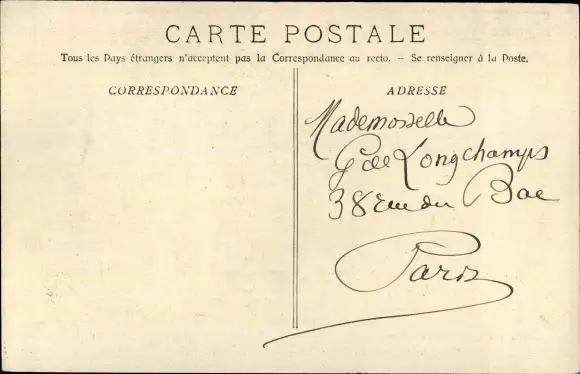 CARTE POSTALE
Tous les Pays étrangers n'acceptent pas la Correspondance au recto. – Se renseigner à la Poste.
CORRESPONDANCE
ADRESSE
Mademoiselle
G de Longchamps
38 rue du Bac
Paris